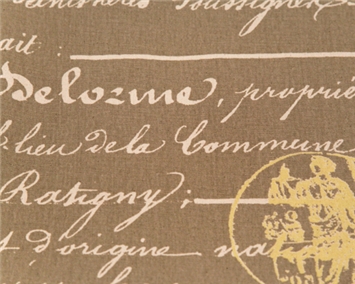 Soussigné
ait :
Delorme, proprié
lieu de la Commune
Ratigny ;
d'origine na